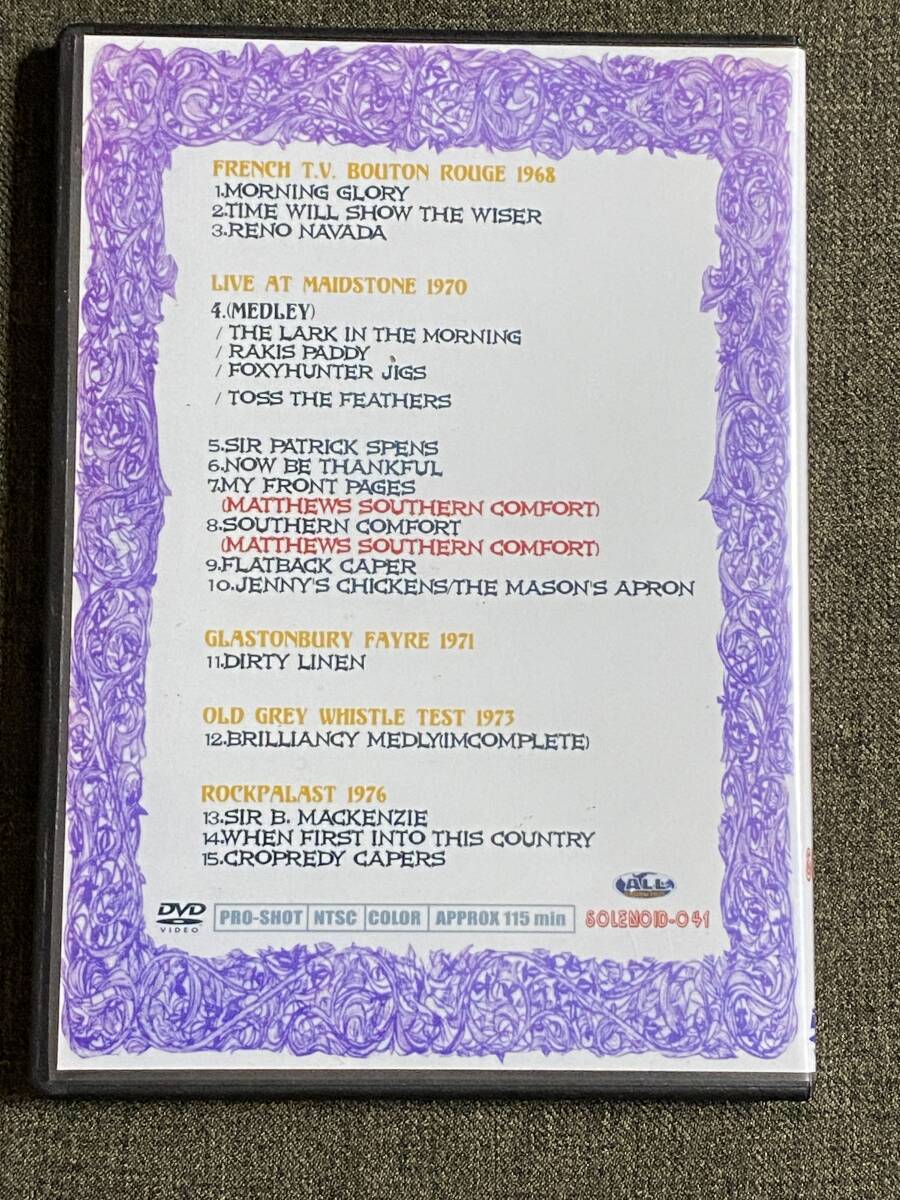 FRENCH T.V. BOUTON ROUGE 1968
1.MORNING GLORY
2.TIME WILL SHOW THE WISER
3.RENO NAVADA
LIVE AT MAIDSTONE 1970
4.(MEDLEY)
/ THE LARK IN THE MORNING
/ RAKIS PADDY
/ FOXYHUNTER JIGS
/ TOSS THE FEATHERS
5.SIR PATRICK SPENS
6.NOW BE THANKFUL
7.MY FRONT PAGES
(MATTHEWS SOUTHERN COMFORT)
8.SOUTHERN COMFORT
(MATTHEWS SOUTHERN COMFORT)
9.FLATBACK CAPER
10.JENNY'S CHICKENS/THE MASON'S APRON
GLASTONBURY FAYRE 1971
11.DIRTY LINEN
OLD GREY WHISTLE TEST 1973
12.BRILLIANCY MEDLY(IMCOMPLETE)
ROCKPALAST 1976
13.SIR B. MACKENZIE
14.WHEN FIRST INTO THIS COUNTRY
15.CROPREDY CAPERS
ALL
DVD VIDEO PRO-SHOT NTSC COLOR APPROX 115 min SOLENOID-041